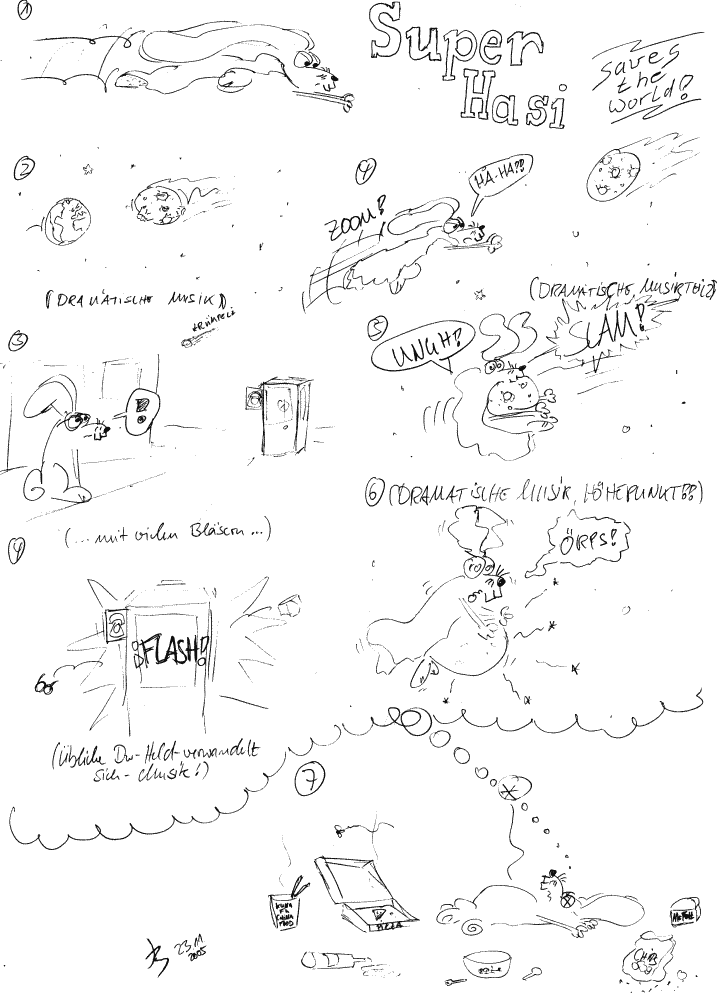 1
Super
Hasi
saves
the
world!
2
(DRAMATISCHE MUSIK)
4
ZOOM!
HÄ-HÄ??
3
(DRAMATISCHE MUSIK
5
UNGH!
SLAM!
(...mit vielen Bläsern...)
6 (DRAMATISCHE MUSIK, HÖHEPUNKT!!)
ÖRPS!
4
¡FLASH!
(übliche Der-Held-verwandelt
sich-Musik!)
7
KUNG
FU
CHINA
FOOD
PIZZA
CHIPS
23.11
2005